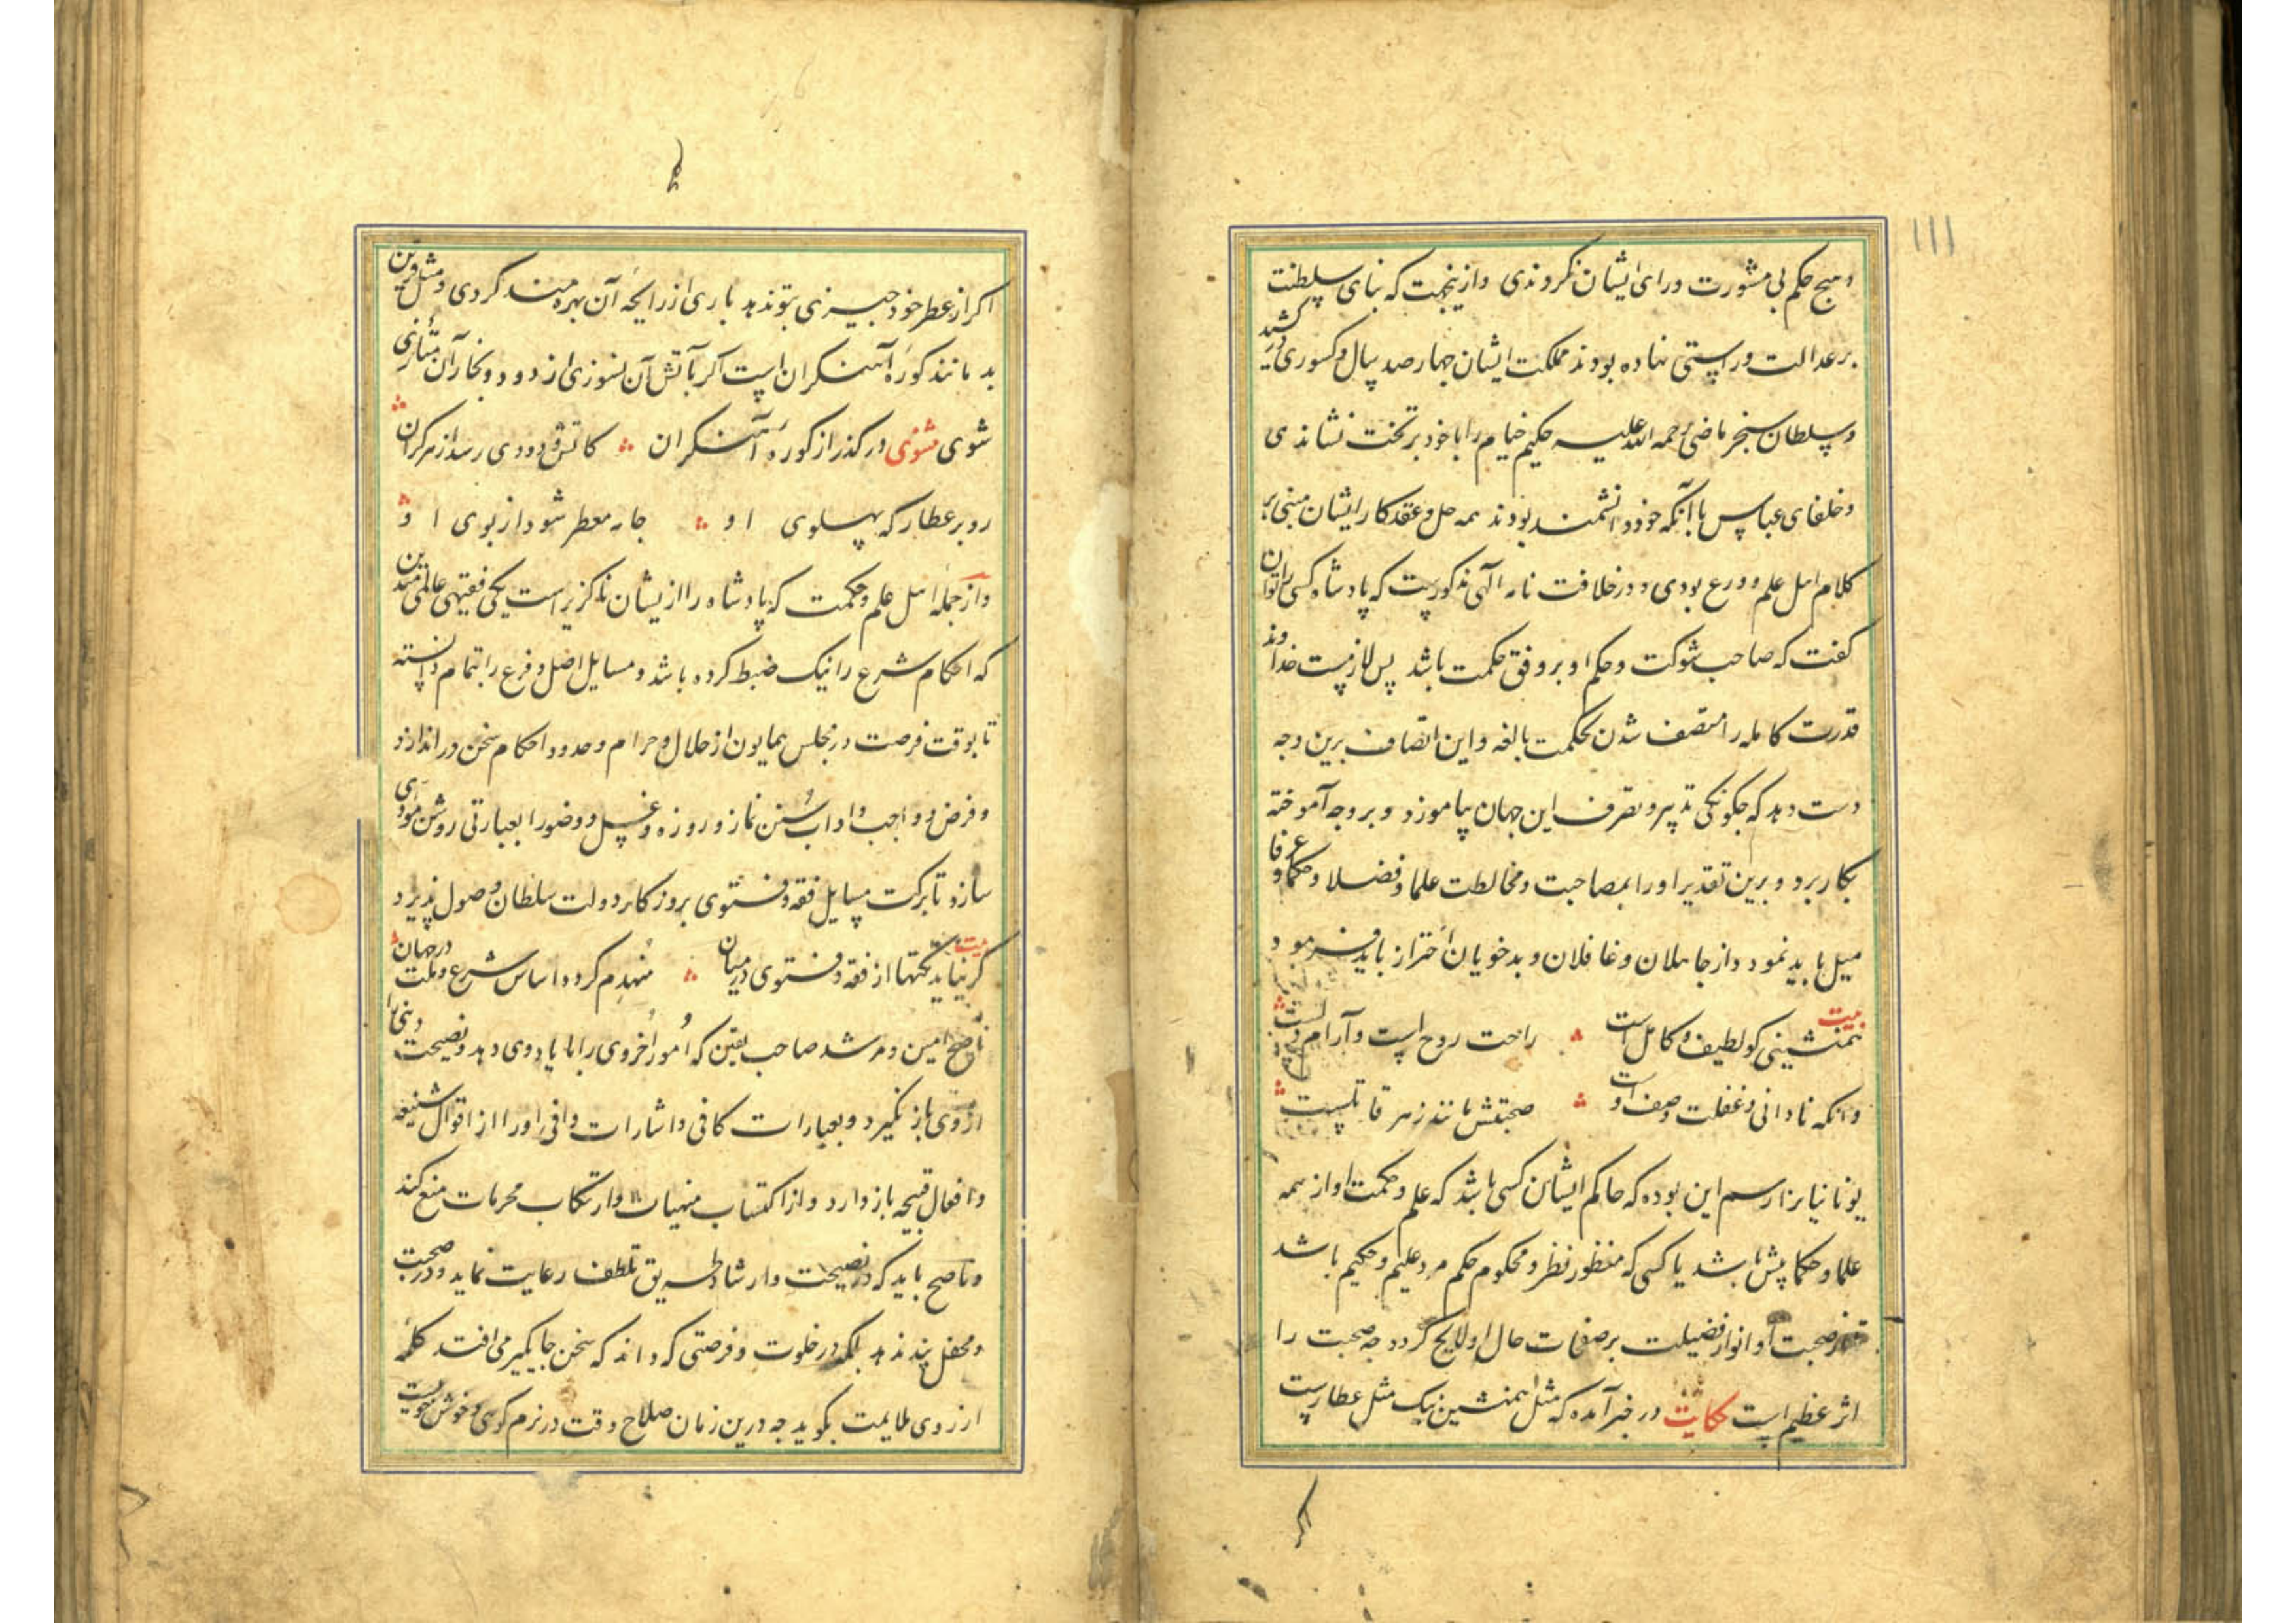 ۱۱۱
و هیچ حکم بی مشورت و رای ایشان نکردندی و ازینجهت که بنای سلطنت
بر عدالت و راستی نهاده بودند مملکت ایشان چهار صد سال و کسوری در کشید
و سلطان سنجر ماضی رحمه الله علیه حکیم خیام را با خود بر تخت نشاندی
و خلفای عباس با آنکه خود دانشمند بودند همه حل و عقد کار ایشان مبنی بر
کلام اهل علم و ورع بودی و در خلافت نامه الهی مذکورست که پادشاه کسی را توان
کفت که صاحب شوکت و حکم او بر وفق حکمت باشد پس لازمست خداوند
قدرت کامله را متصف شدن بحکمت بالغه و این اتصاف برین وجه
دست دهد که چگونکی تدبیر و تصرف این جهان بیاموزد و بر وجه آموخته
بکار برد و برین تقدیر او را بمصاحبت و مخالطت علما و فضلا و حکما و عرفا
میل باید نمود و از جاهلان و غافلان و بدخویان احتراز باید فرمود
بیت
همنشینی کو لطیف و کامل است ؞ راحت روح است و آرام دلست
وانکه نادانی و غفلت وصف اوست ؞ صحبتش مانند زهر قاتلست
یونانیانرا رسم این بوده که حاکم ایشان کسی باشد که علم و حکمت او از همه
علما و حکما پیش باشد یا کسی که منظور نظر و محکوم حکم مرد علیم و حکیم باشد
صحبت او انوار فضیلت بر صفحات حال او لایح کردد چه صحبت را
اثر عظیم است حکایت در خبر آمده که مثل همنشین نیک مثل عطارست
اکر
اکر از عطر خود چیزی بتو ندهد باری از رایحه آن بهره مند کردی و مثل قرین
بد مانند کوره آهنکران است اکر بآتش آن نسوزی از دود و بخار آن متأذی
شوی مثنوی در کذر از کوره آهنکران ؞ کاتش و دودی رسد از هر کران
رو بر عطار که پهلوی او ؞ جامه معطر شود از بوی او
و از جمله اهل علم و حکمت که پادشاه را از یشان ناکزیر است یکی فقیهی عالم متدین
که احکام شرع را نیک ضبط کرده باشد و مسایل اصل و فرع را بتمام دانسته
تا بوقت فرصت در مجلس همایون از حلال و حرام و حدود احکام سخن در اندازد
و فرض و واجب و اداب و سنن نماز و روزه و غسل و وضو را بعبارتی روشن مؤدی
سازد تا برکت مسایل فقه و فتوی بروزکار دولت سلطان وصول پذیرد
بیت
کر نیاید نکتها از فقه و فتوی در میان ؞ منهدم کردد اساس شرع و ملت در جهان
ناصح امین و مرشد صاحب یقین که امور اخروی را با یاد وی دهد و نصیحت
از وی باز نکیرد و بعبارات کافی و اشارات وافی او را از اقوال شنیعه
و افعال قبیحه باز دارد و از اکتساب منهیات و ارتکاب محرمات منع کند
و ناصح باید که در نصیحت و ارشاد طریق تلطف رعایت نماید و در صحبت
و محفل پند ندهد بلکه در خلوت و فرصتی که داند که سخن جایکیر می افتد کلمه
از روی ملایمت بکوید چه درین زمان صلاح وقت در نرم کویی و خوش خوییست